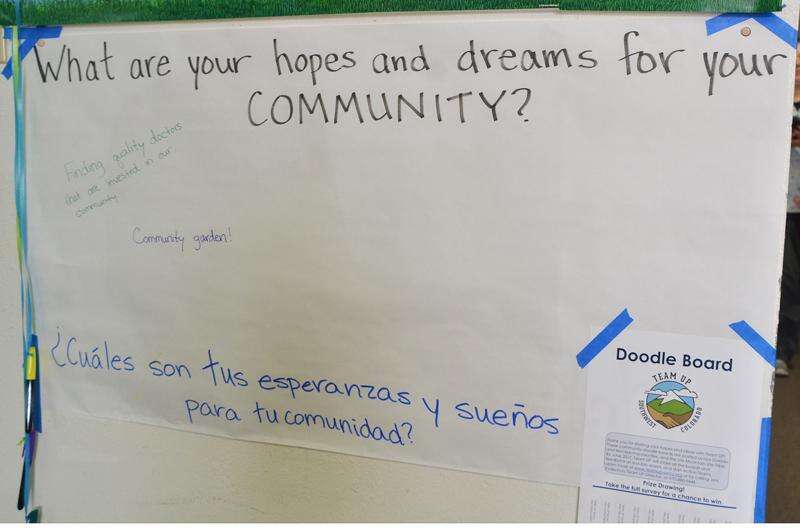 What are your hopes and dreams for your
COMMUNITY?
Finding quality doctors
that are invested in our
community
Community garden!
¿Cuáles son tus esperanzas y sueños
para tu comunidad?
Doodle Board
TEAM UP
SOUTHWEST COLORADO
Prize Drawing!
Take the full survey for a chance to win.